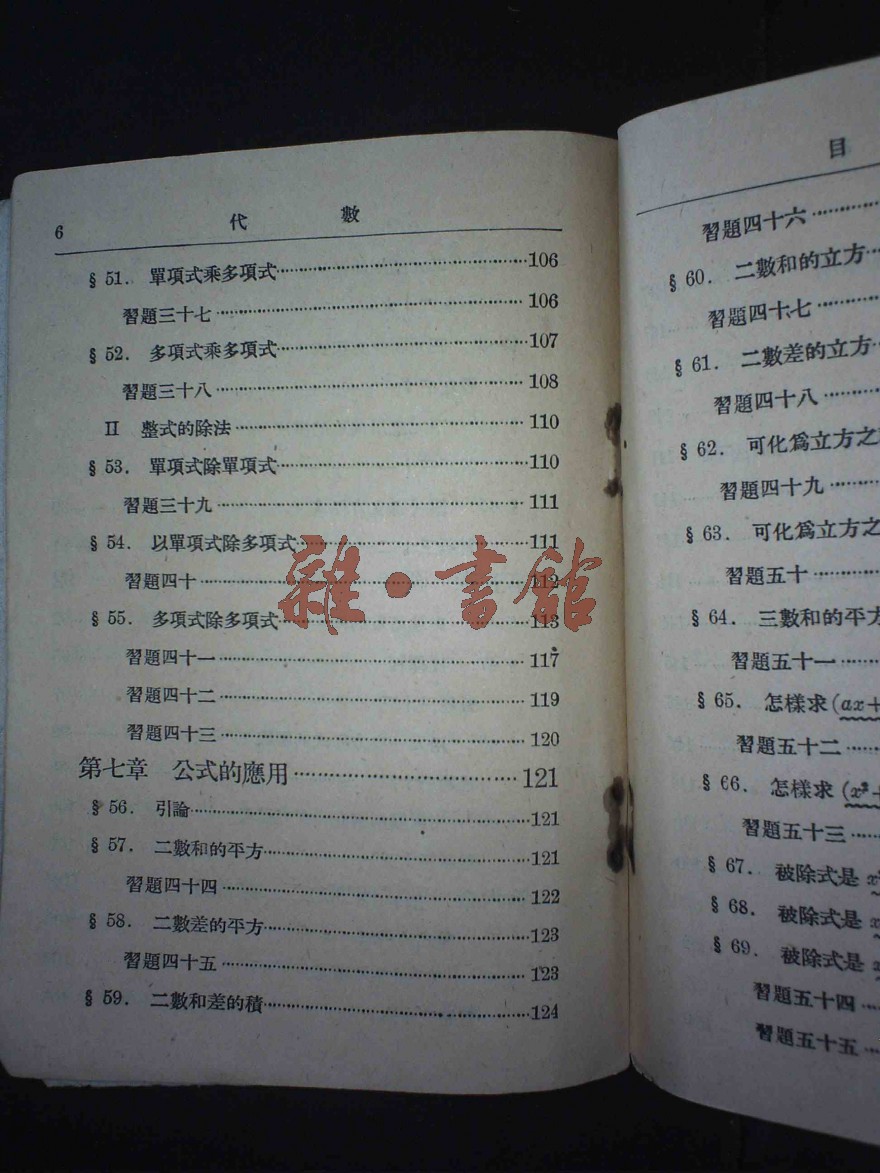 6 代 數
§ 51. 單項式乘多項式……106
習題三十七……106
§ 52. 多項式乘多項式……107
習題三十八……108
II 整式的除法……110
§ 53. 單項式除單項式……110
習題三十九……111
§ 54. 以單項式除多項式……111
習題四十……112
§ 55. 多項式除多項式……113
習題四十一……117
習題四十二……119
習題四十三……120
第七章 公式的應用……121
§ 56. 引論……121
§ 57. 二數和的平方……121
習題四十四……122
§ 58. 二數差的平方……123
習題四十五……123
§ 59. 二數和差的積……124
雜·書館
目
習題四十六……
§ 60. 二數和的立方……
習題四十七……
§ 61. 二數差的立方……
習題四十八……
§ 62. 可化爲立方之
習題四十九……
§ 63. 可化爲立方之
習題五十……
§ 64. 三數和的平方
習題五十一……
§ 65. 怎樣求(ax+
習題五十二……
§ 66. 怎樣求(x²+
習題五十三……
§ 67. 被除式是 x
§ 68. 被除式是 x
§ 69. 被除式是 x
習題五十四……
習題五十五……